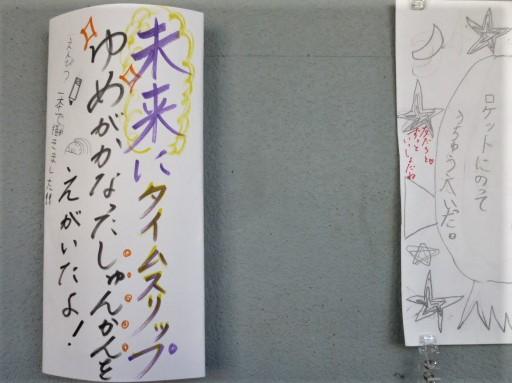 未来にタイムスリップ
ゆめがかなったしゅんかんを
えがいたよ!
えんぴつ
一本で描きました!!
ロケットにのって
うちゅうへ
友だちと。